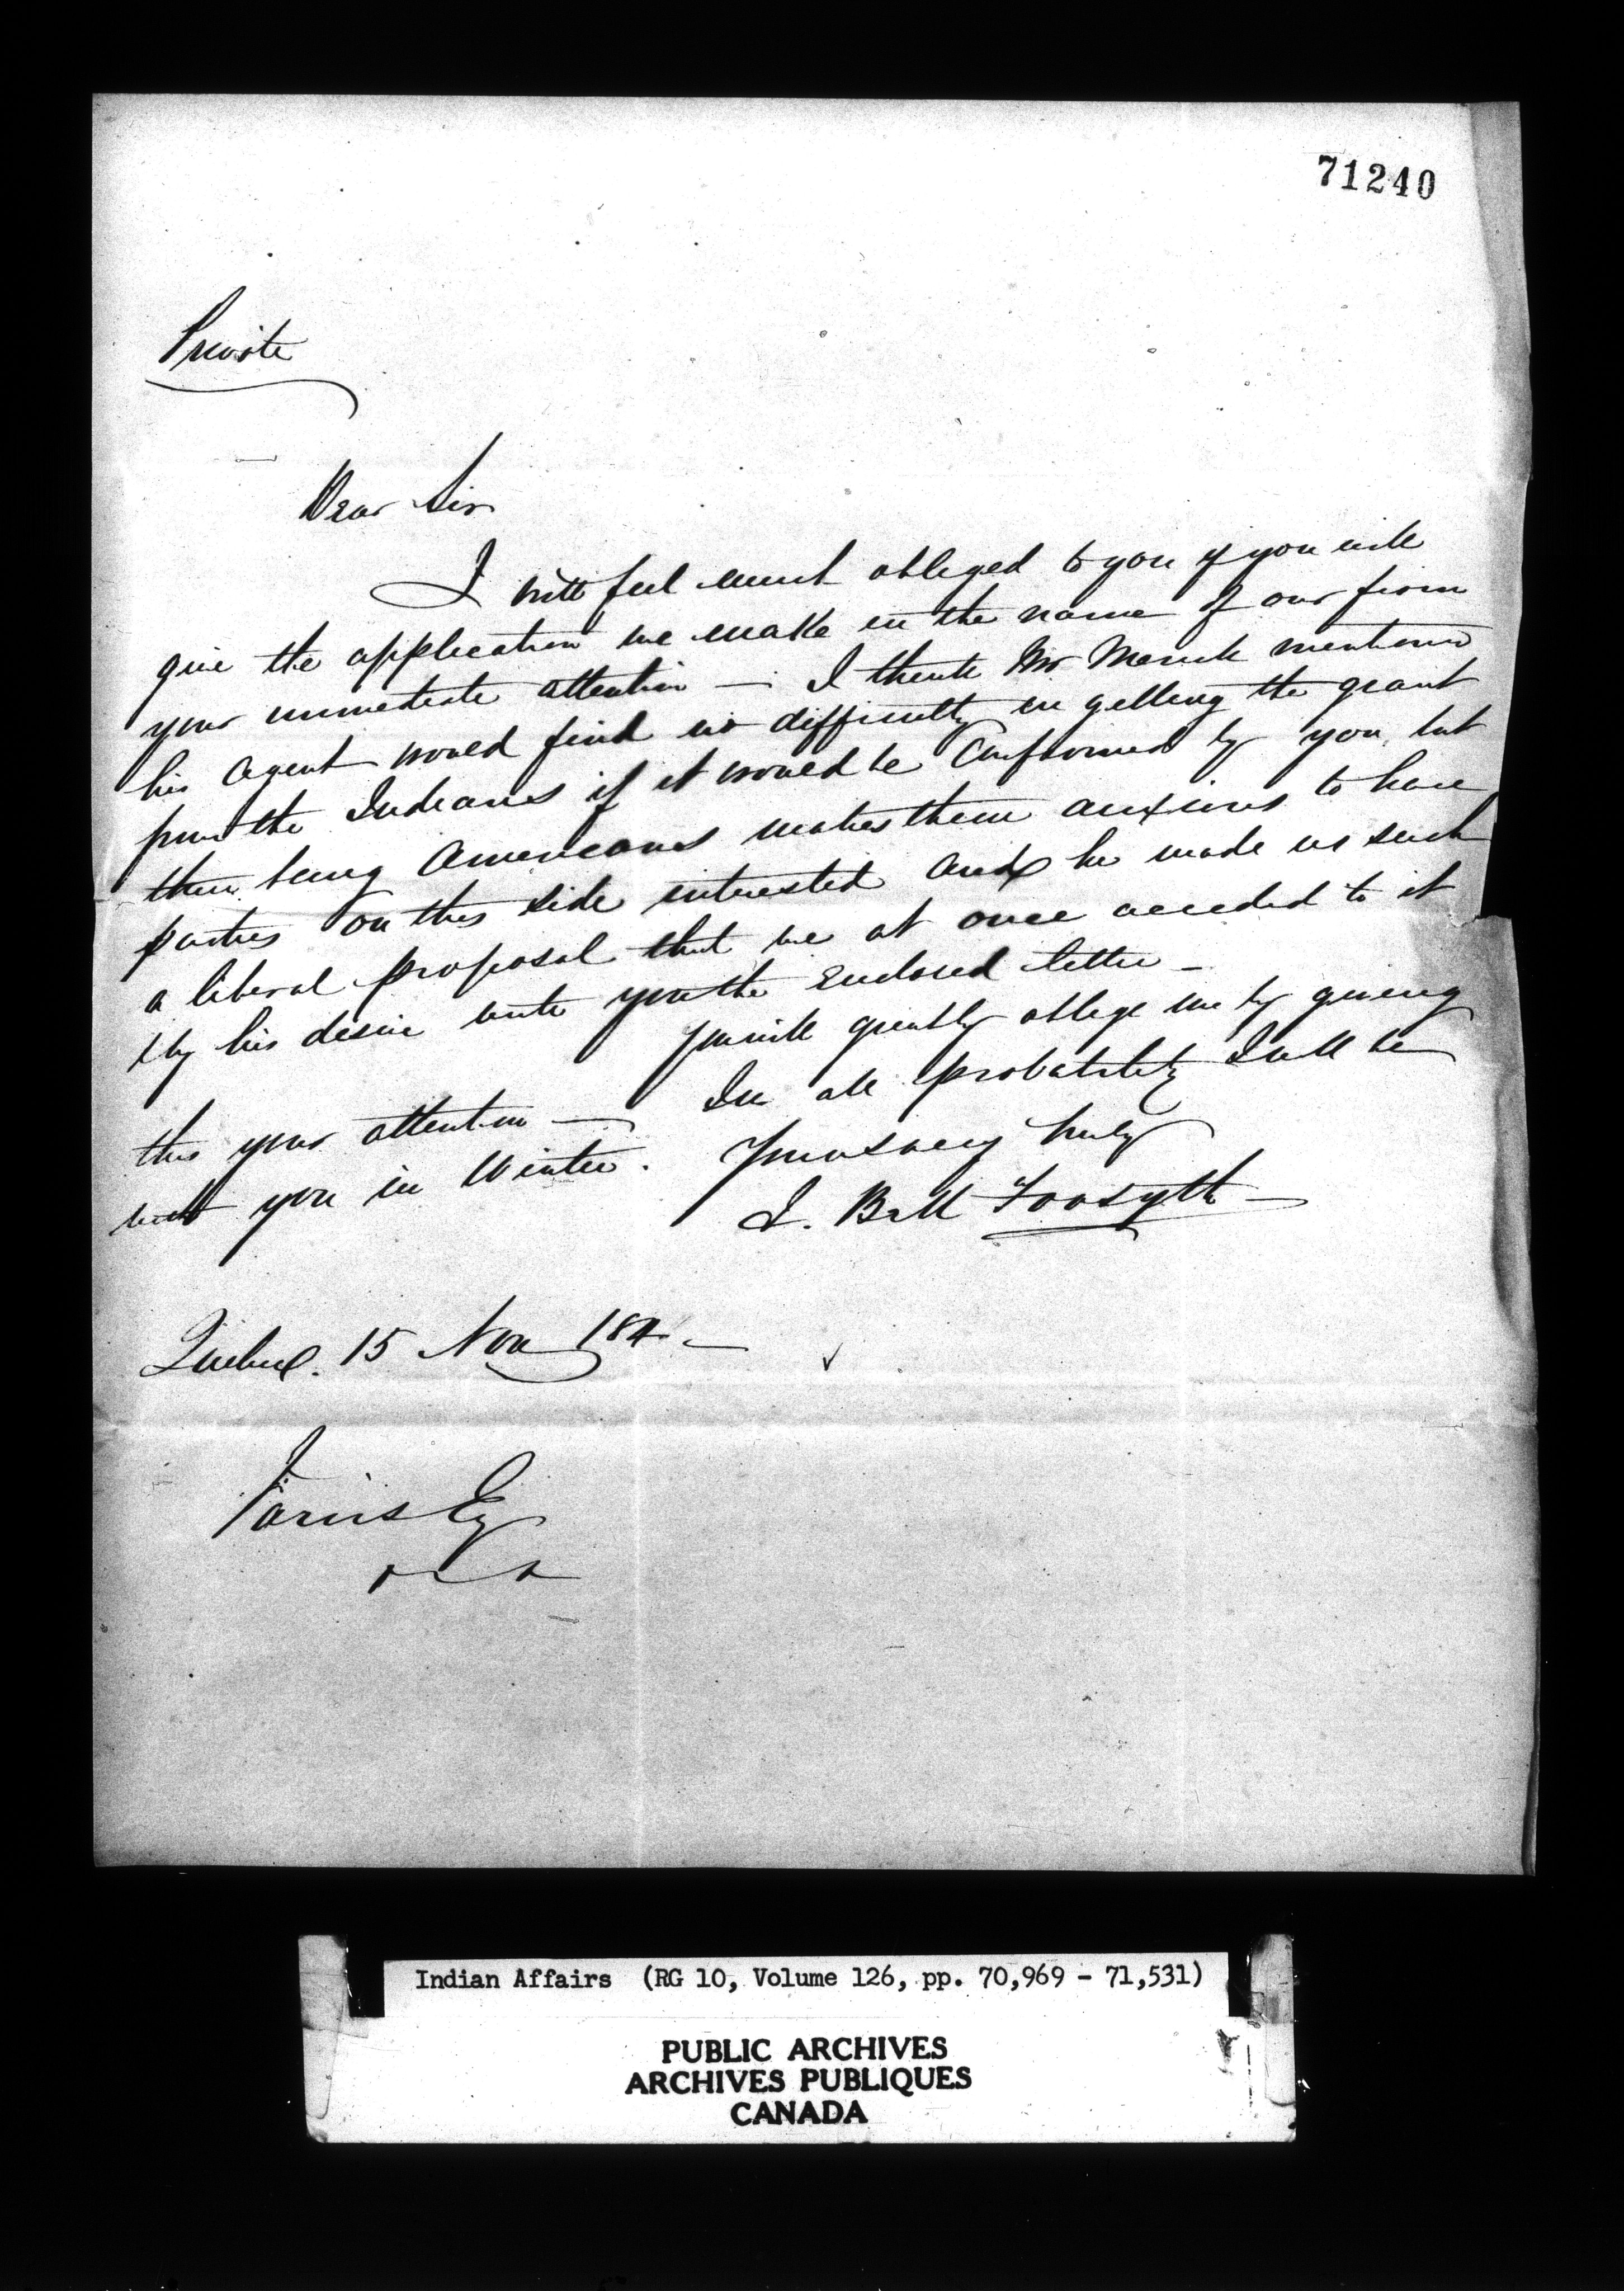 71240
Private
Dear Sir
I will feel much obliged to you if you will
give the application we make in the name of our firm
your immediate attention — I think Mr mentioned
his Agent would find no difficulty in getting the grant
from the Indians if it would be Confirmed by you, but
them being Americans makes them anxious to have
parties on this side interested and he made us such
a liberal proposal that we at once acceded to it
& by his desire write you the Enclosed letter —
You will greatly oblige me by giving
this your attention — In all probability I will be
with you in Winter. Yours very truly
J. Bell Forsyth
Quebec. 15 Nov
Jarvis Esq
Indian Affairs (RG 10, Volume 126, pp. 70,969 - 71,531)
PUBLIC ARCHIVES
ARCHIVES PUBLIQUES
CANADA